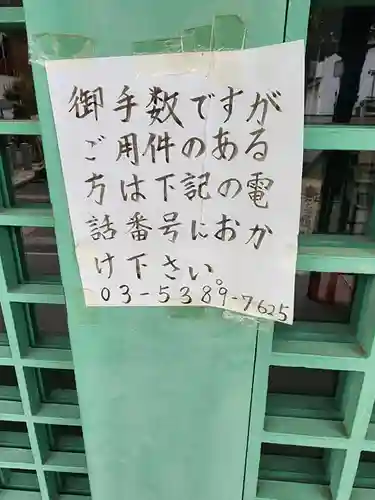 御手数ですが
ご用件のある
方は下記の電
話番号におか
け下さい。
03-5389-7625